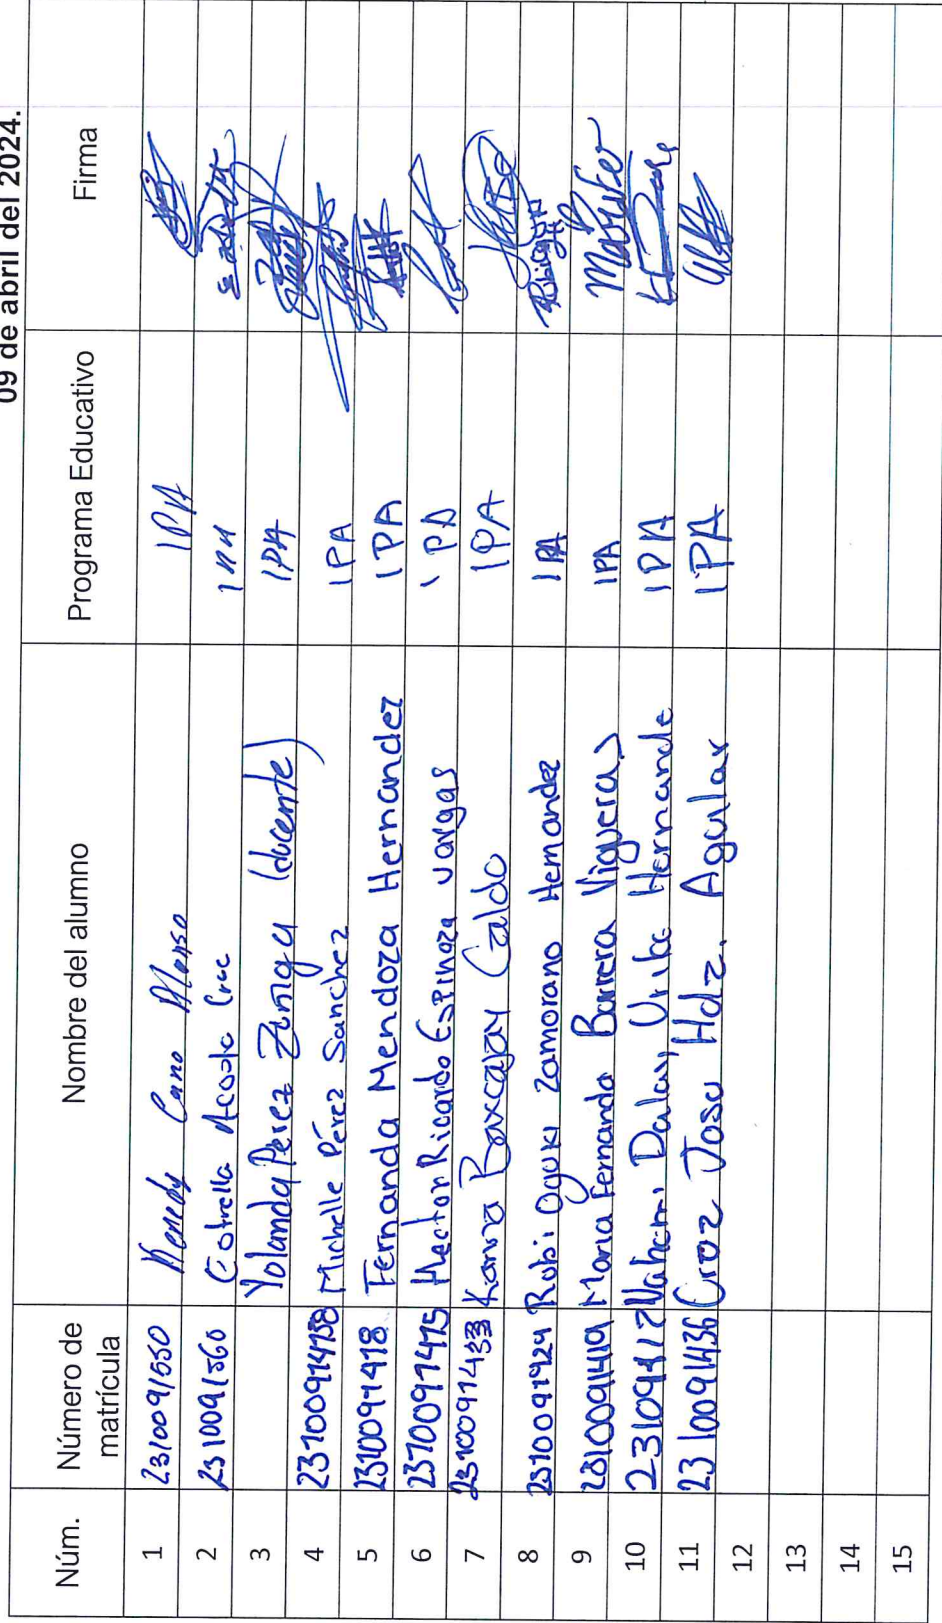 09 de abril del 2024.
Núm. Número de matrícula Nombre del alumno Programa Educativo Firma
1 2310091550 Kenedy Cano Alonso IPA
2 2310091560 Estrella Acosta Cruc IPA
3 Yolanda Perez Zuniga (docente) IPA
4 2310091458 Michelle Pérez Sanchez IPA
5 2310091418 Fernanda Mendoza Hernandez IPA
6 2310091415 Hector Ricardo Espinoza vargas IPA
7 2310091433 Karina Baxcajay Caldo IPA
8 2310091424 Rubi Oyuki Zamorano Hernandez IPA
9 2310091419 Maria Fernanda Barrera Vigueras IPA
10 231091417 Nahomi Dalay Uribe Hernande IPA
11 2310091436 Cruz Josu Hdz. Aguilar IPA
12
13
14
15